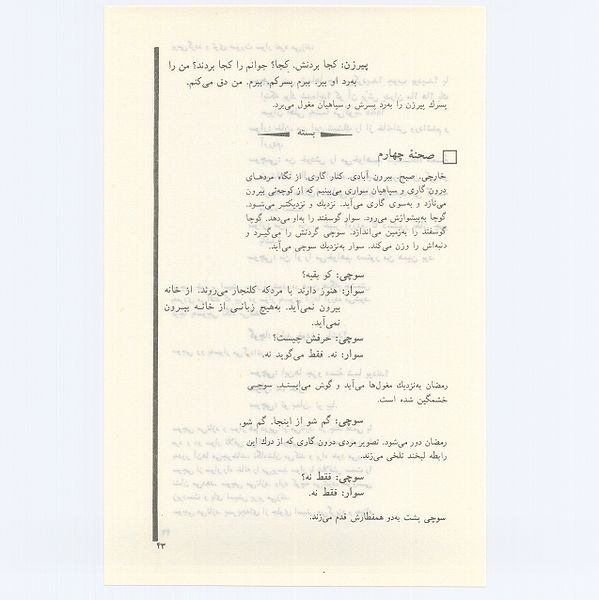 پیرزن: کجا بردنش. کجا؟ جوانم را کجا بردند؟ من را
به‌رد او ببر. ببرم پسرکم، ببرم. من دق می‌کنم.
پسرك پیرزن را به‌رد پسرش و سپاهیان مغول می‌برد.
بسته
صحنهٔ چهارم
خارجی. صبح. بیرون آبادی. کنار گاری. از نگاه مردهـای
درون گاری و سپاهیان سواری می‌بینیم که از کوچه‌ئی بیرون
می‌تازد و به‌سوی گاری می‌آید. نزدیك و نزدیکتـر می‌شـود.
گوجا به‌پیشوازش می‌رود. سوار گوسفند را به‌او می‌دهد. گوجا
گوسفند را به‌زمین می‌اندازد. سوچی گردنش را می‌گیـرد و
دنبه‌اش را وزن می‌کند. سوار به‌نزدیك سوچی می‌آید.
سوچی: کو بقیه؟
سوار: هنوز دارند با مردکه کلنجار می‌روند. از خانه
بیرون نمی‌آید. به‌هیچ زبانـی از خانـه بیـرون
نمی‌آید.
سوچی: حرفش چیست؟
سوار: نه. فقط می‌گوید نه.
رمضان به‌نزدیك مغول‌ها می‌آید و گوش می‌ایستـد. سوچـی
خشمگین شده است.
سوچی: گم شو از اینجا. گم شو.
رمضان دور می‌شود. تصویر مردی درون گاری که از درك این
رابطه لبخند تلخی می‌زند.
سوچی: فقط نه؟
سوار: فقط نه.
سوچی پشت به‌دو همقطارش قدم می‌زند.
۴۳